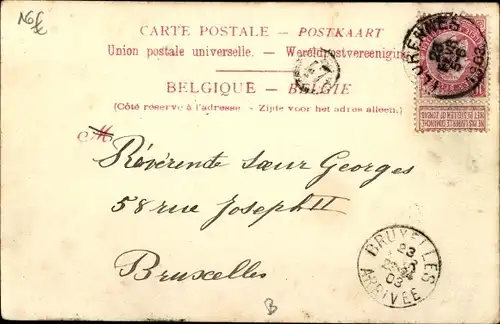 CARTE POSTALE – POSTKAART
Union postale universelle. – Wereldpostvereeniging
BELGIQUE – BELGIE
(Côté réservé à l'adresse. – Zijde voor het adres alleen.)
M
Révérente Sœur Georges
58 rue Joseph II
Bruxelles
FLORENNES
1903
NE PAS LIVRER LE DIMANCHE
NIET BESTELLEN OP ZONDAG
BRUXELLES
23
03
ARRIVÉE
B